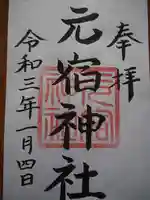 奉拝
元宿神社
令和三年一月四日